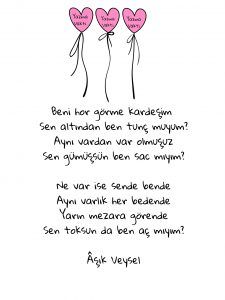 Yazma vakti
Yazma vakti
Yazma vakti
Beni hor görme kardeşim
Sen altından ben tunç muyum?
Aynı vardan var olmuşuz
Sen gümüşsün ben sac mıyım?
Ne var ise sende bende
Aynı varlık her bedende
Yarın mezara girende
Sen toksun da ben aç mıyım?
Âşık Veysel